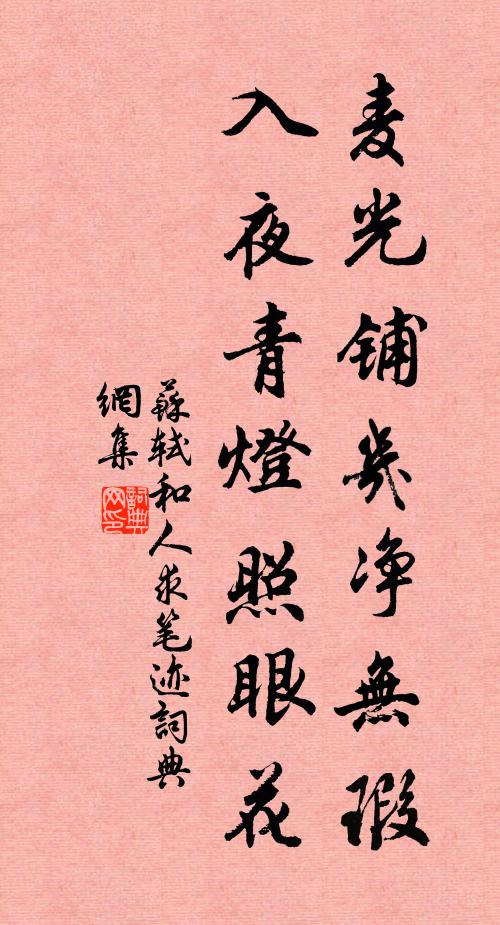 麦光铺幾净無瑕
入夜青燈照眼花
蘇軾和人求笔迹詞典
網集
詞典
网印